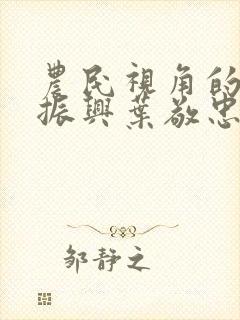 農民視角的
振興葉敬忠
邹静之